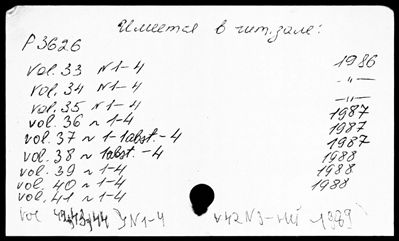 Имеется в чит. зале:
P 3626
vol. 33 N 1-4 1986
vol. 34 N 1-4 -"-
vol. 35 N 1-4 -"-
vol. 36 N 1-4 1987
vol. 37 N 1-1abst.-4 1987
vol. 38 N 1abst.-4 1987
vol. 39 N 1-4 1988
vol. 40 N 1-4 1988
vol. 41 N 1-4 1988
vol 44 N1-4 v42 N3- 1989